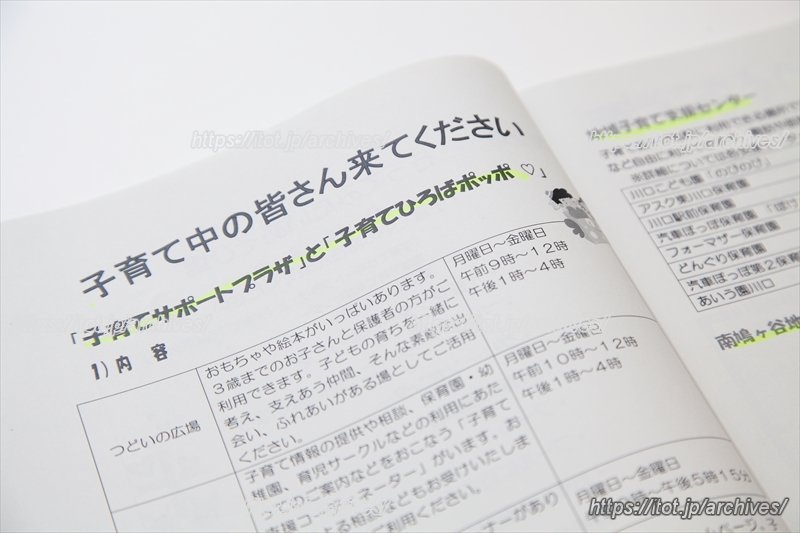 子育て中の皆さん来てください
「子育てサポートプラザ」と「子育てひろばポッポ♡」
1）内 容
つどいの広場
おもちゃや絵本がいっぱいあります。
3歳までのお子さんと保護者の方がご
利用できます。子どもの育ちを一緒に
考え、支えあう仲間、そんな素敵な出
会い、ふれあいがある場としてご活用
ください。
月曜日〜金曜日
午前9時〜12時
午後1時〜4時
子育て情報の提供や相談、保育園・幼
稚園、育児サークルなどの利用にあた
ってのご案内などをおこなう「子育て
支援コーディネーター」がいます。お
よる相談などもお受けいたしま
ご利用ください。
月曜日〜金曜日
午前10時〜12時
午後1時〜4時
ナーがあり
月曜日〜金曜日
〜午後5時15分
ムページ、子
子育て支援センター
など自由に
川口こども園「のびのび」
アスク東川口保育園
川口駅前保育園
汽車ぽっぽ保育園
フォーマザー保育園
どんぐり保育園
汽車ぽっぽ第2保育園
あいう園川口
南鳩ヶ谷地
https://itot.jp/archives/
https://itot.jp/archives/
https://itot.jp/archives/